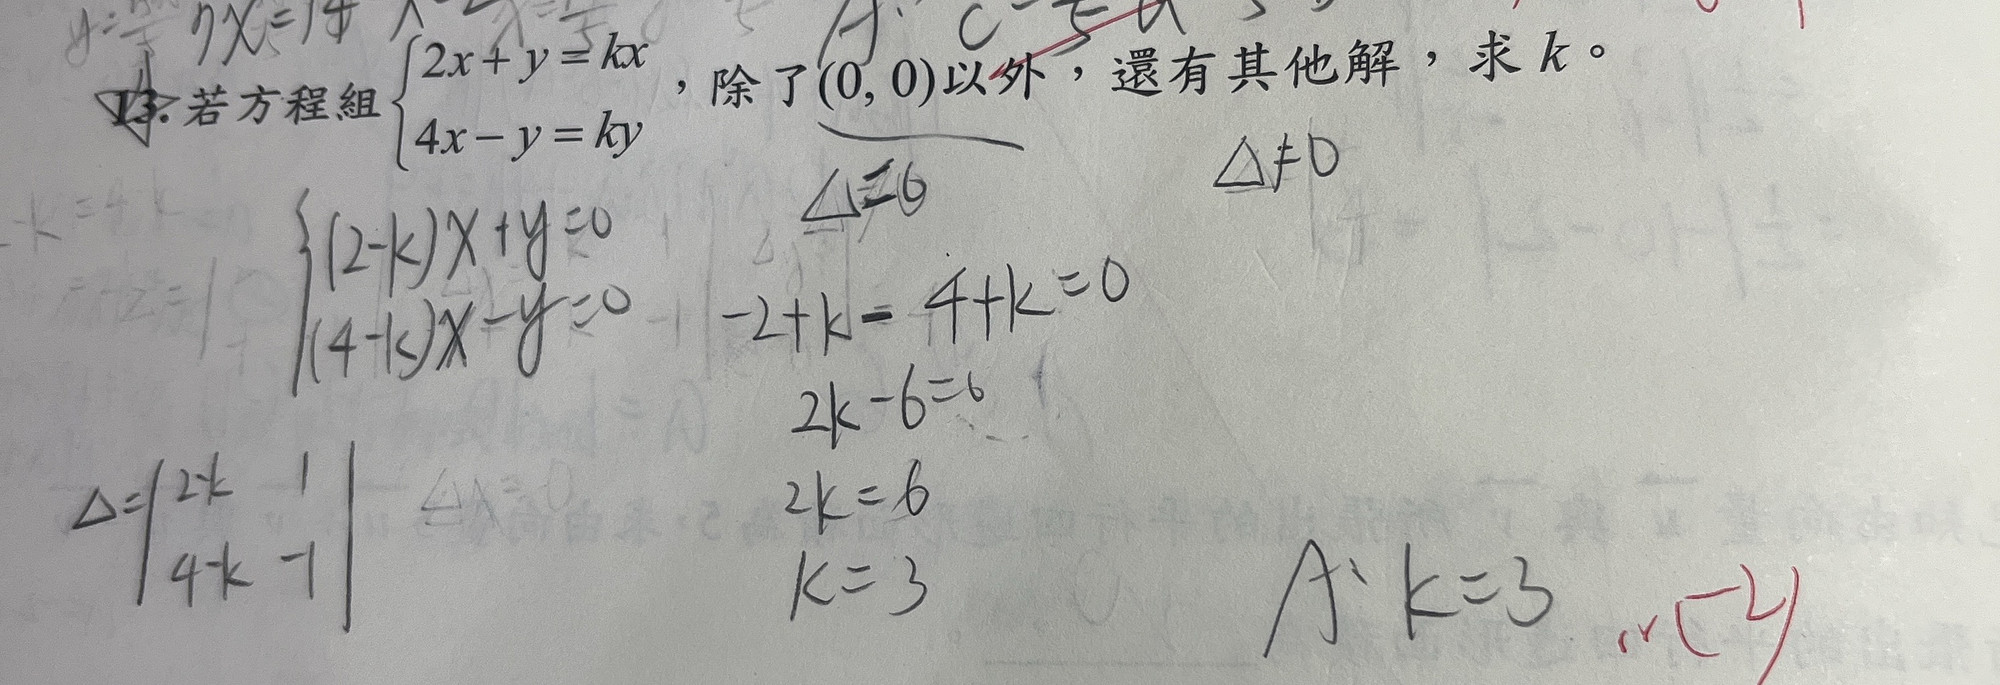 13. 若方程組{2x+y=kx
4x-y=ky ，除了(0, 0)以外，還有其他解，求 k。
△=0
△≠0
{(2-k)x+y=0
(4-k)x-y=0
-2+k-4+k=0
2k-6=0
2k=6
k=3
△=|2-k 1
4-k -1|
A: k=3
(-2)